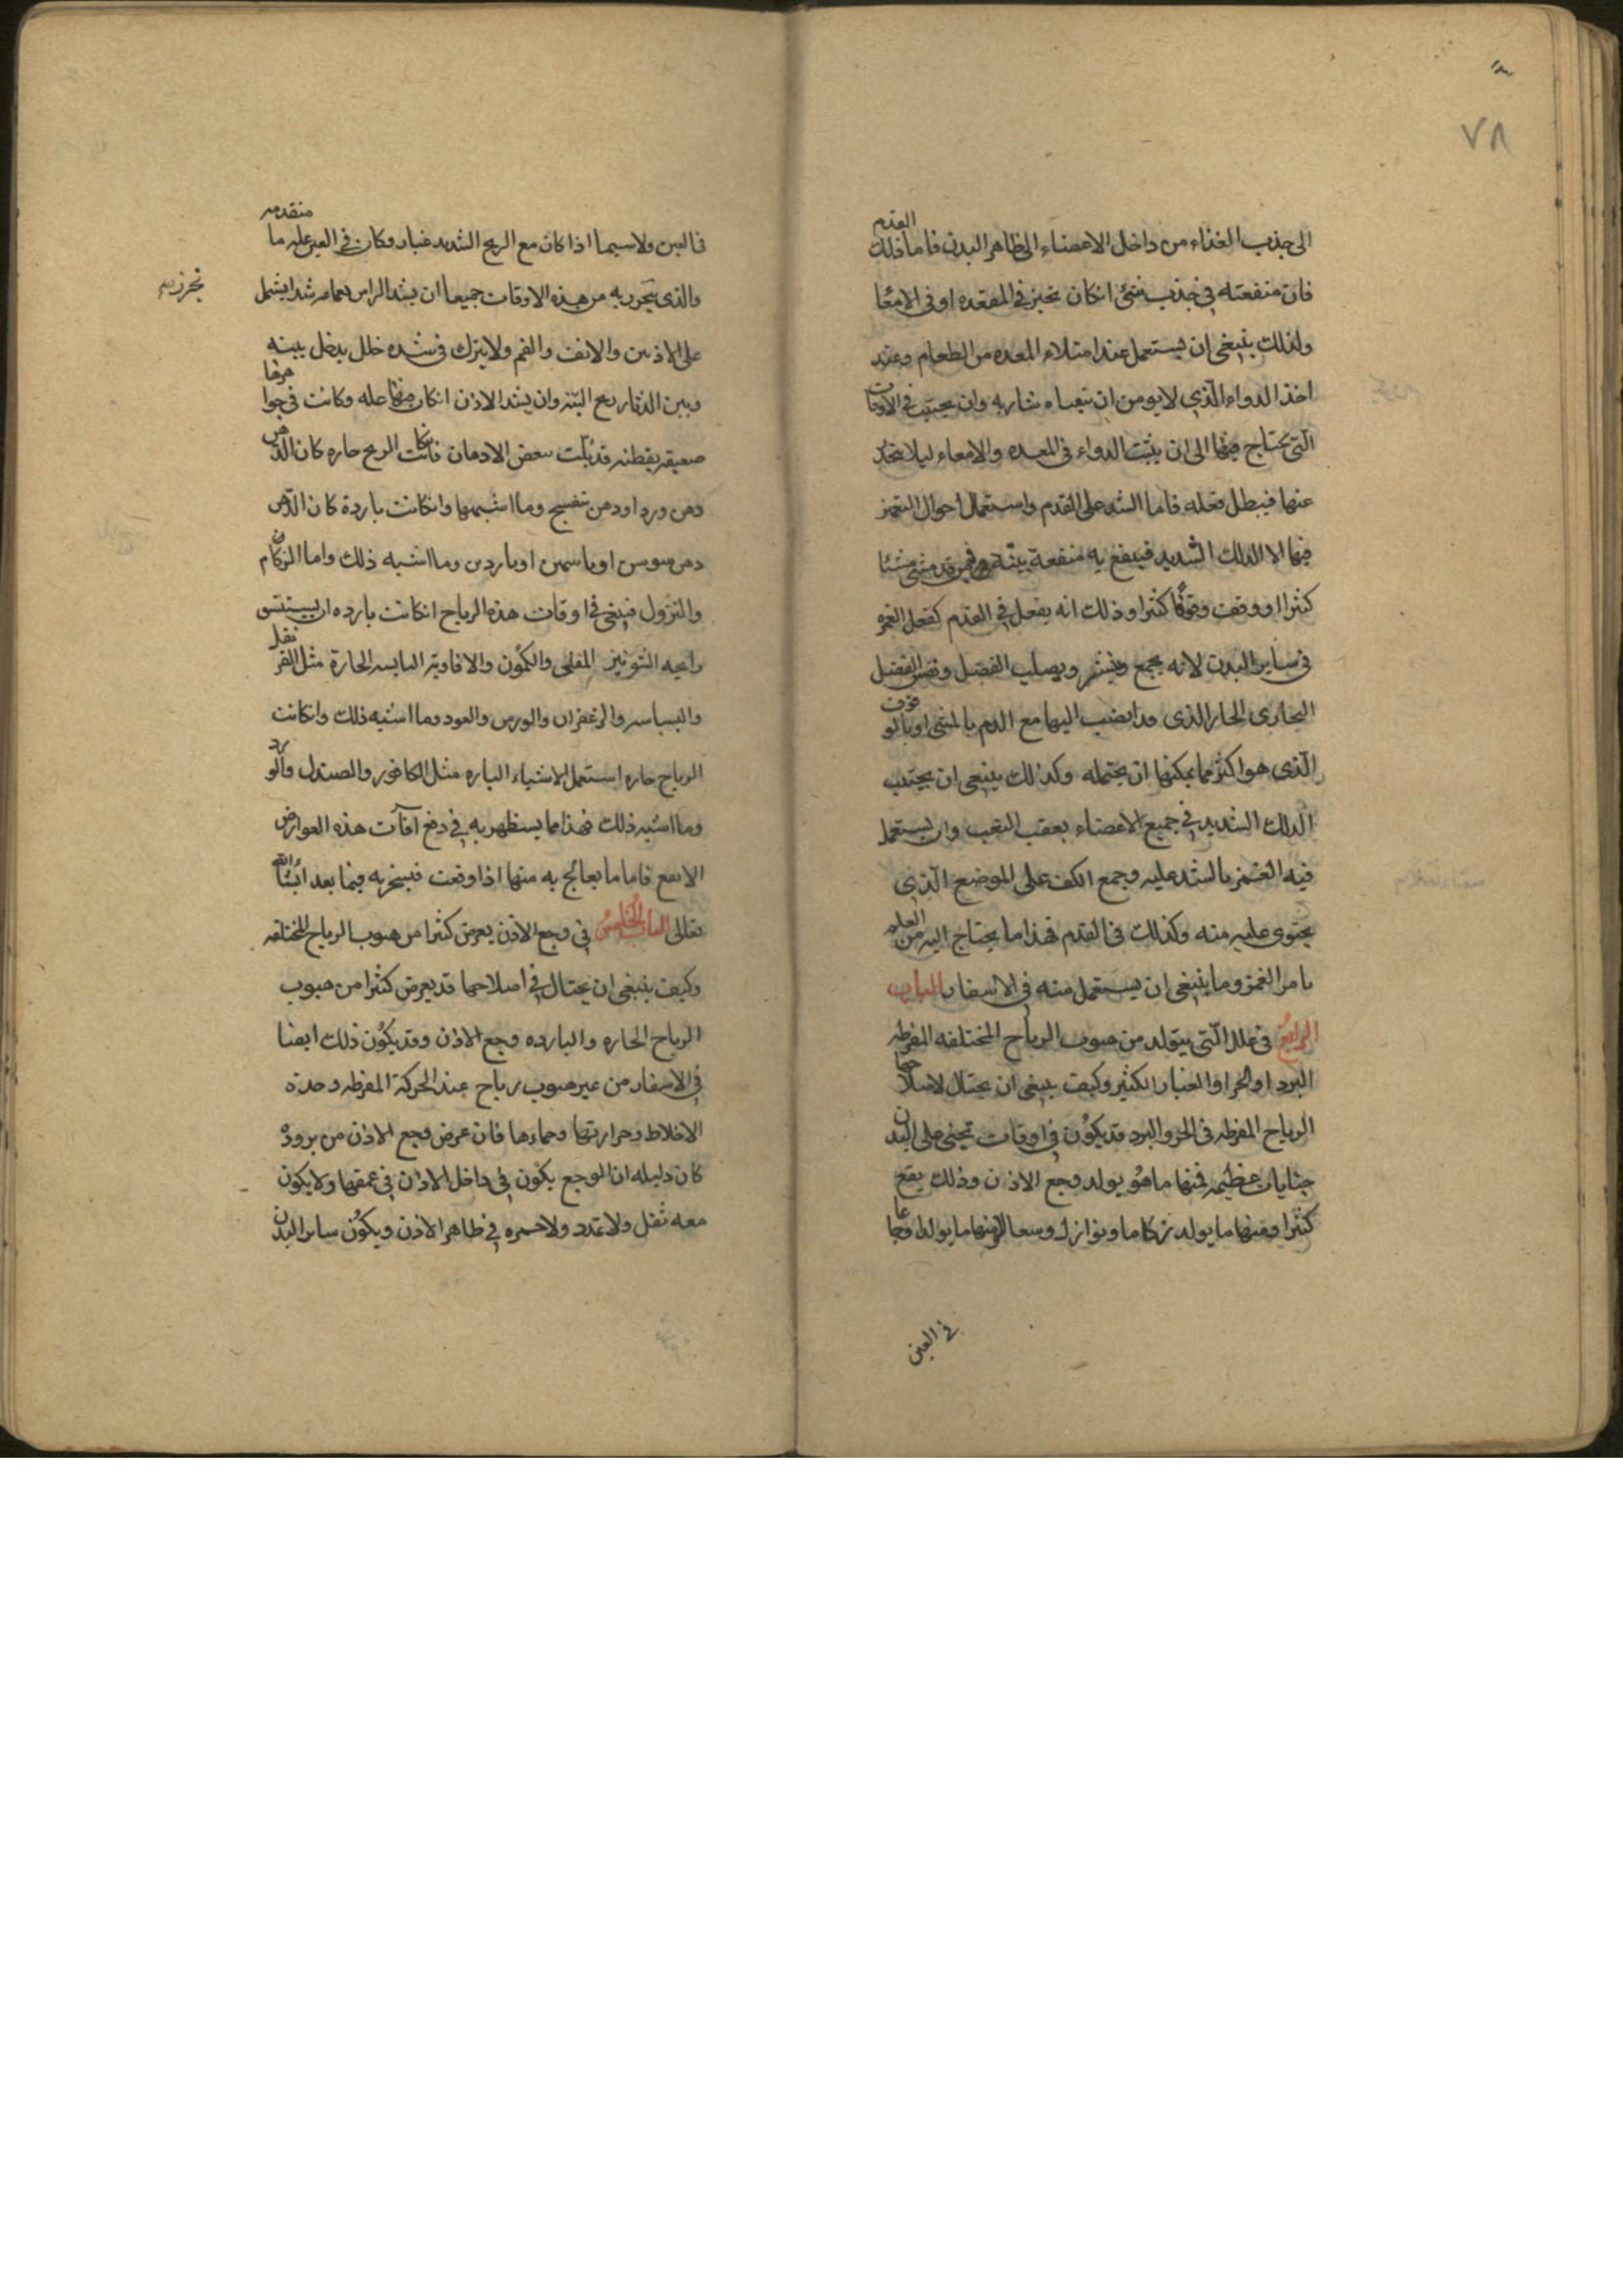 ٧٨
الى جذب الغذاء من داخل الاعضاء الى ظاهر البدن فاما دلك القدم
فان منفعته في جذب شئ انكان تحيز في المعده او في الامعا
ولذلك ينبغي ان يستعمل عند امتلاء المعده من الطعام وعند
اخذ الدواء الذي لا يومن ان يتقياه شاربه وان يجتنب في الاوقات
التي يحتاج فيها الى ان يثبت الدواء في المعده والامعاء ليلا ينحدر
عنها فيبطل فعله فاما الشد على القدم واستعمال احوال الغمز
فيها لا الدلك الشديد فينفع به منفعة بينة من قد مشى مشيا
كثيرا او وقف وقوفا كثيرا وذلك انه يفعل في القدم كفعل الغمز
في ساير البدن لانه يجمع ويصلب الفضل الفضل
البخاري الحار الذي قد انصب اليها مع الدم بالمشي او بالوقوف
الذي هو اكثر مما يمكنها ان يحتمله وكذلك ينبغي ان يجتنب
الدلك الشديد في جميع الاعضاء بعقب التعب وان يستعمل
فيه الغمز بالشد عليه وجمع الكف على الموضع الذي
يحتوى عليه منه وكذلك في القدم فهذا ما يحتاج اليه من العلم
بامر الغمز وما ينبغي ان يستعمل منه في الاسفار الباب
الرابع في علل التي يتولد من هبوب الرياح المختلفه المفرطه
البرد او الحر او الغبار الكثير وكيف ينبغي ان يحتال لاصلاحها
الرياح المفرطه في الحر والبرد قد يكون في اوقات تجنى على البدن
جنايات عظيمه فمنها ما هو يولد وجع الاذن وذلك يقع
كثيرا ومنها ما يولد زكاما ونوازل وسعالا ومنها ما يولد اوجاعا
في العين
في العين ولاسيما اذا كان مع الريح الشديد غبار وكان في العين عله ما متقدمه
والذي يتحرز به من هذه الاوقات جميعا ان يشد الراس بعمامه شدا يشمل
على الاذنين والانف والفم ولا يترك في شده خلل يدخل بينه
وبين الدثار ريح البته وان يسد الاذن انكان بها عله وكانت في جوفها
ضعيفه بقطنه قد بلت ببعض الادهان فان كانت الريح حاره كان الدهن
دهن ورد او دهن بنفسج وما اشبهها وانكانت باردة كان الدهن
دهن سوسن او ياسمين او ناردين وما اشبه ذلك واما الزكام
والنزول فينبغي في اوقات هذه الرياح انكانت بارده ان يستنشق
رايحه الشونيز المقلى والكمون والافاويه اليابسه الحارة مثل القرنفل
والبسباسه والزعفران والورس والعود وما اشبه ذلك وانكانت
الرياح حاره استعمل الاشياء البارده مثل الكافور والصندل والورد
وما اشبه ذلك فهذا مما يستظهر به في دفع افات هذه العوارض
الا يقع فاما ما يعالج به منها اذا وقعت فسنخبر به فيما بعد ان شاء الله
تعالى الباب الخامس في وجع الاذن يعرض كثيرا من هبوب الرياح المختلفه
وكيف ينبغي ان يحتال في اصلاحها قد يعرض كثيرا من هبوب
الرياح الحاره والبارده وجع الاذن وقد يكون ذلك ايضا
في الاسفار من غير هبوب رياح عند الحركة المفرطه وحدة
الاخلاط وحرارتها وحماءها فان عرض وجع الاذن من برودة
كان دليله ان الوجع يكون في داخل الاذن في عمقها ولا يكون
معه ثقل ولا تمدد ولا حمره في ظاهر الاذن ويكون ساير البدن